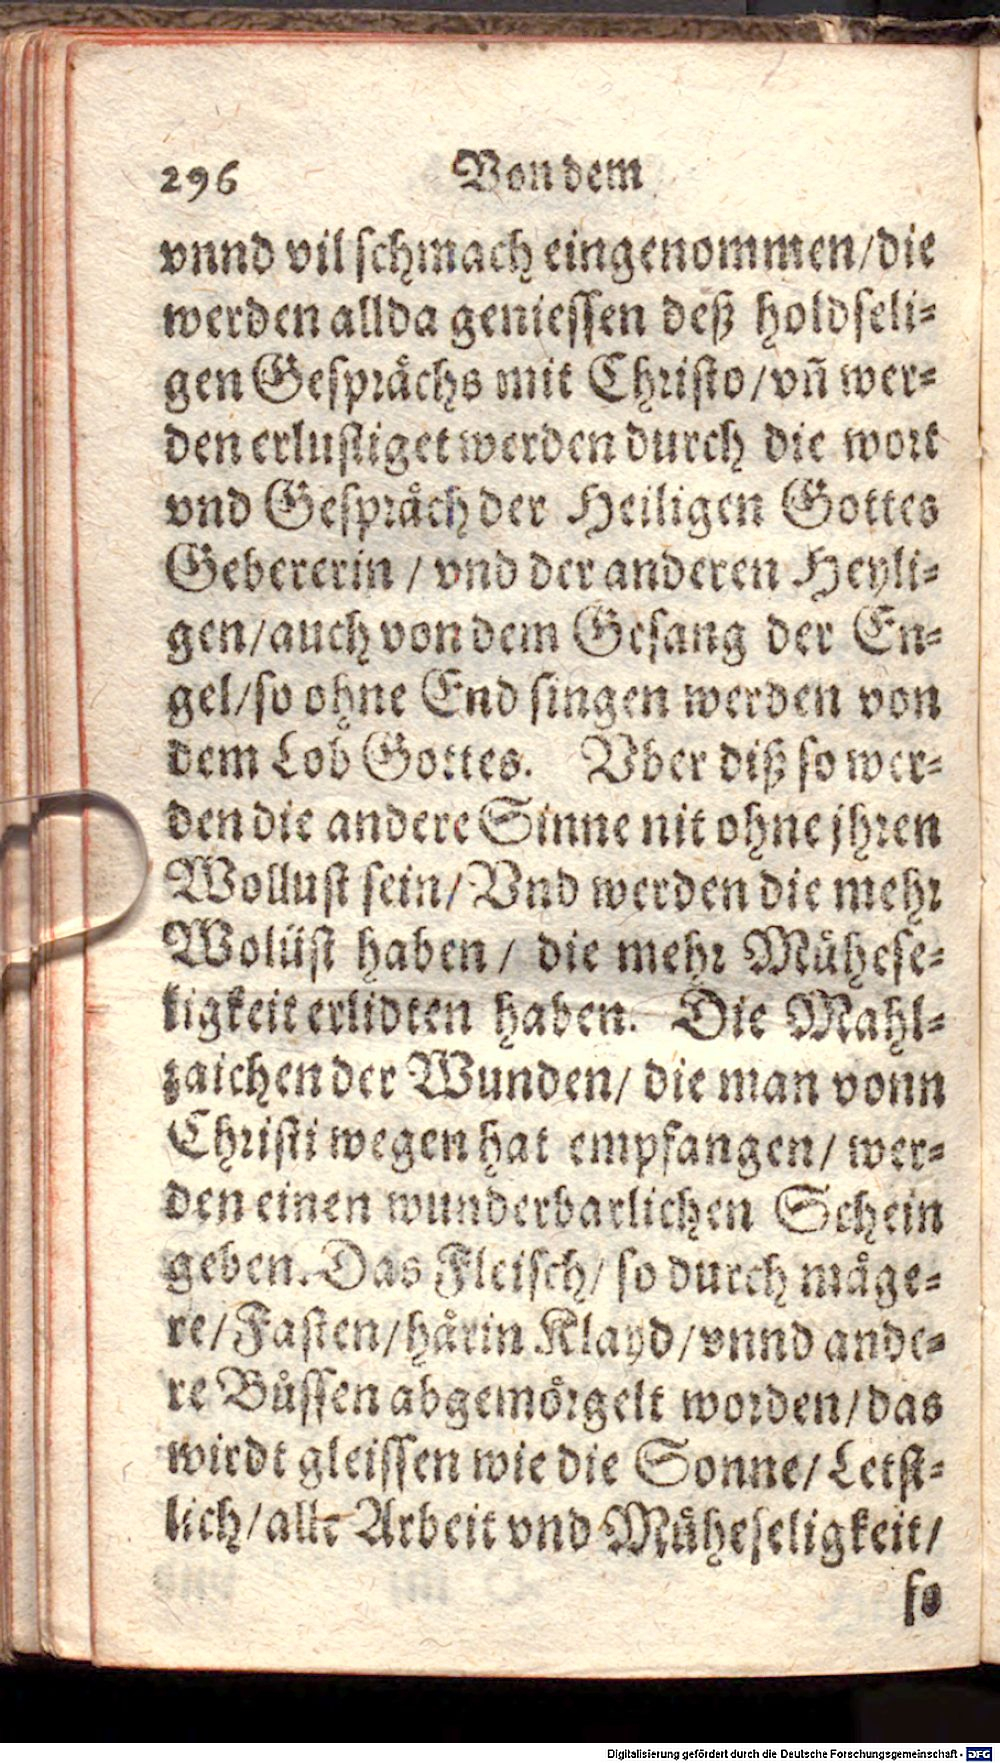 296 Von dem
vnnd vil schmach eingenommen/die
werden allda geniessen deß holdseli-
gen Gesprächs mit Christo/vñ wer-
den erlustiget werden durch die wort
vnd Gespräch der Heiligen Gottes
Gebererin / vnd der anderen Heyli-
gen/auch von dem Gesang der En-
gel/so ohne End singen werden von
dem Lob Gottes. Vber diß so wer-
den die andere Sinne nit ohne jhren
Wollust sein/ Vnd werden die mehr
Wolüst haben / die mehr Mühese-
ligkeit erlidten haben. Die Mahl-
zaichen der Wunden/ die man vonn
Christi wegen hat empfangen/ wer-
den einen wunderbarlichen Schein
geben. Das Fleisch/ so durch mäge-
re/Fasten/härin Klayd/vnnd ande-
re Büssen abgemörgelt worden/das
wirdt gleissen wie die Sonne/ Letst-
lich/alle Arbeit vnd Müheseligkeit/
so
Digitalisierung gefördert durch die Deutsche Forschungsgemeinschaft - DFG